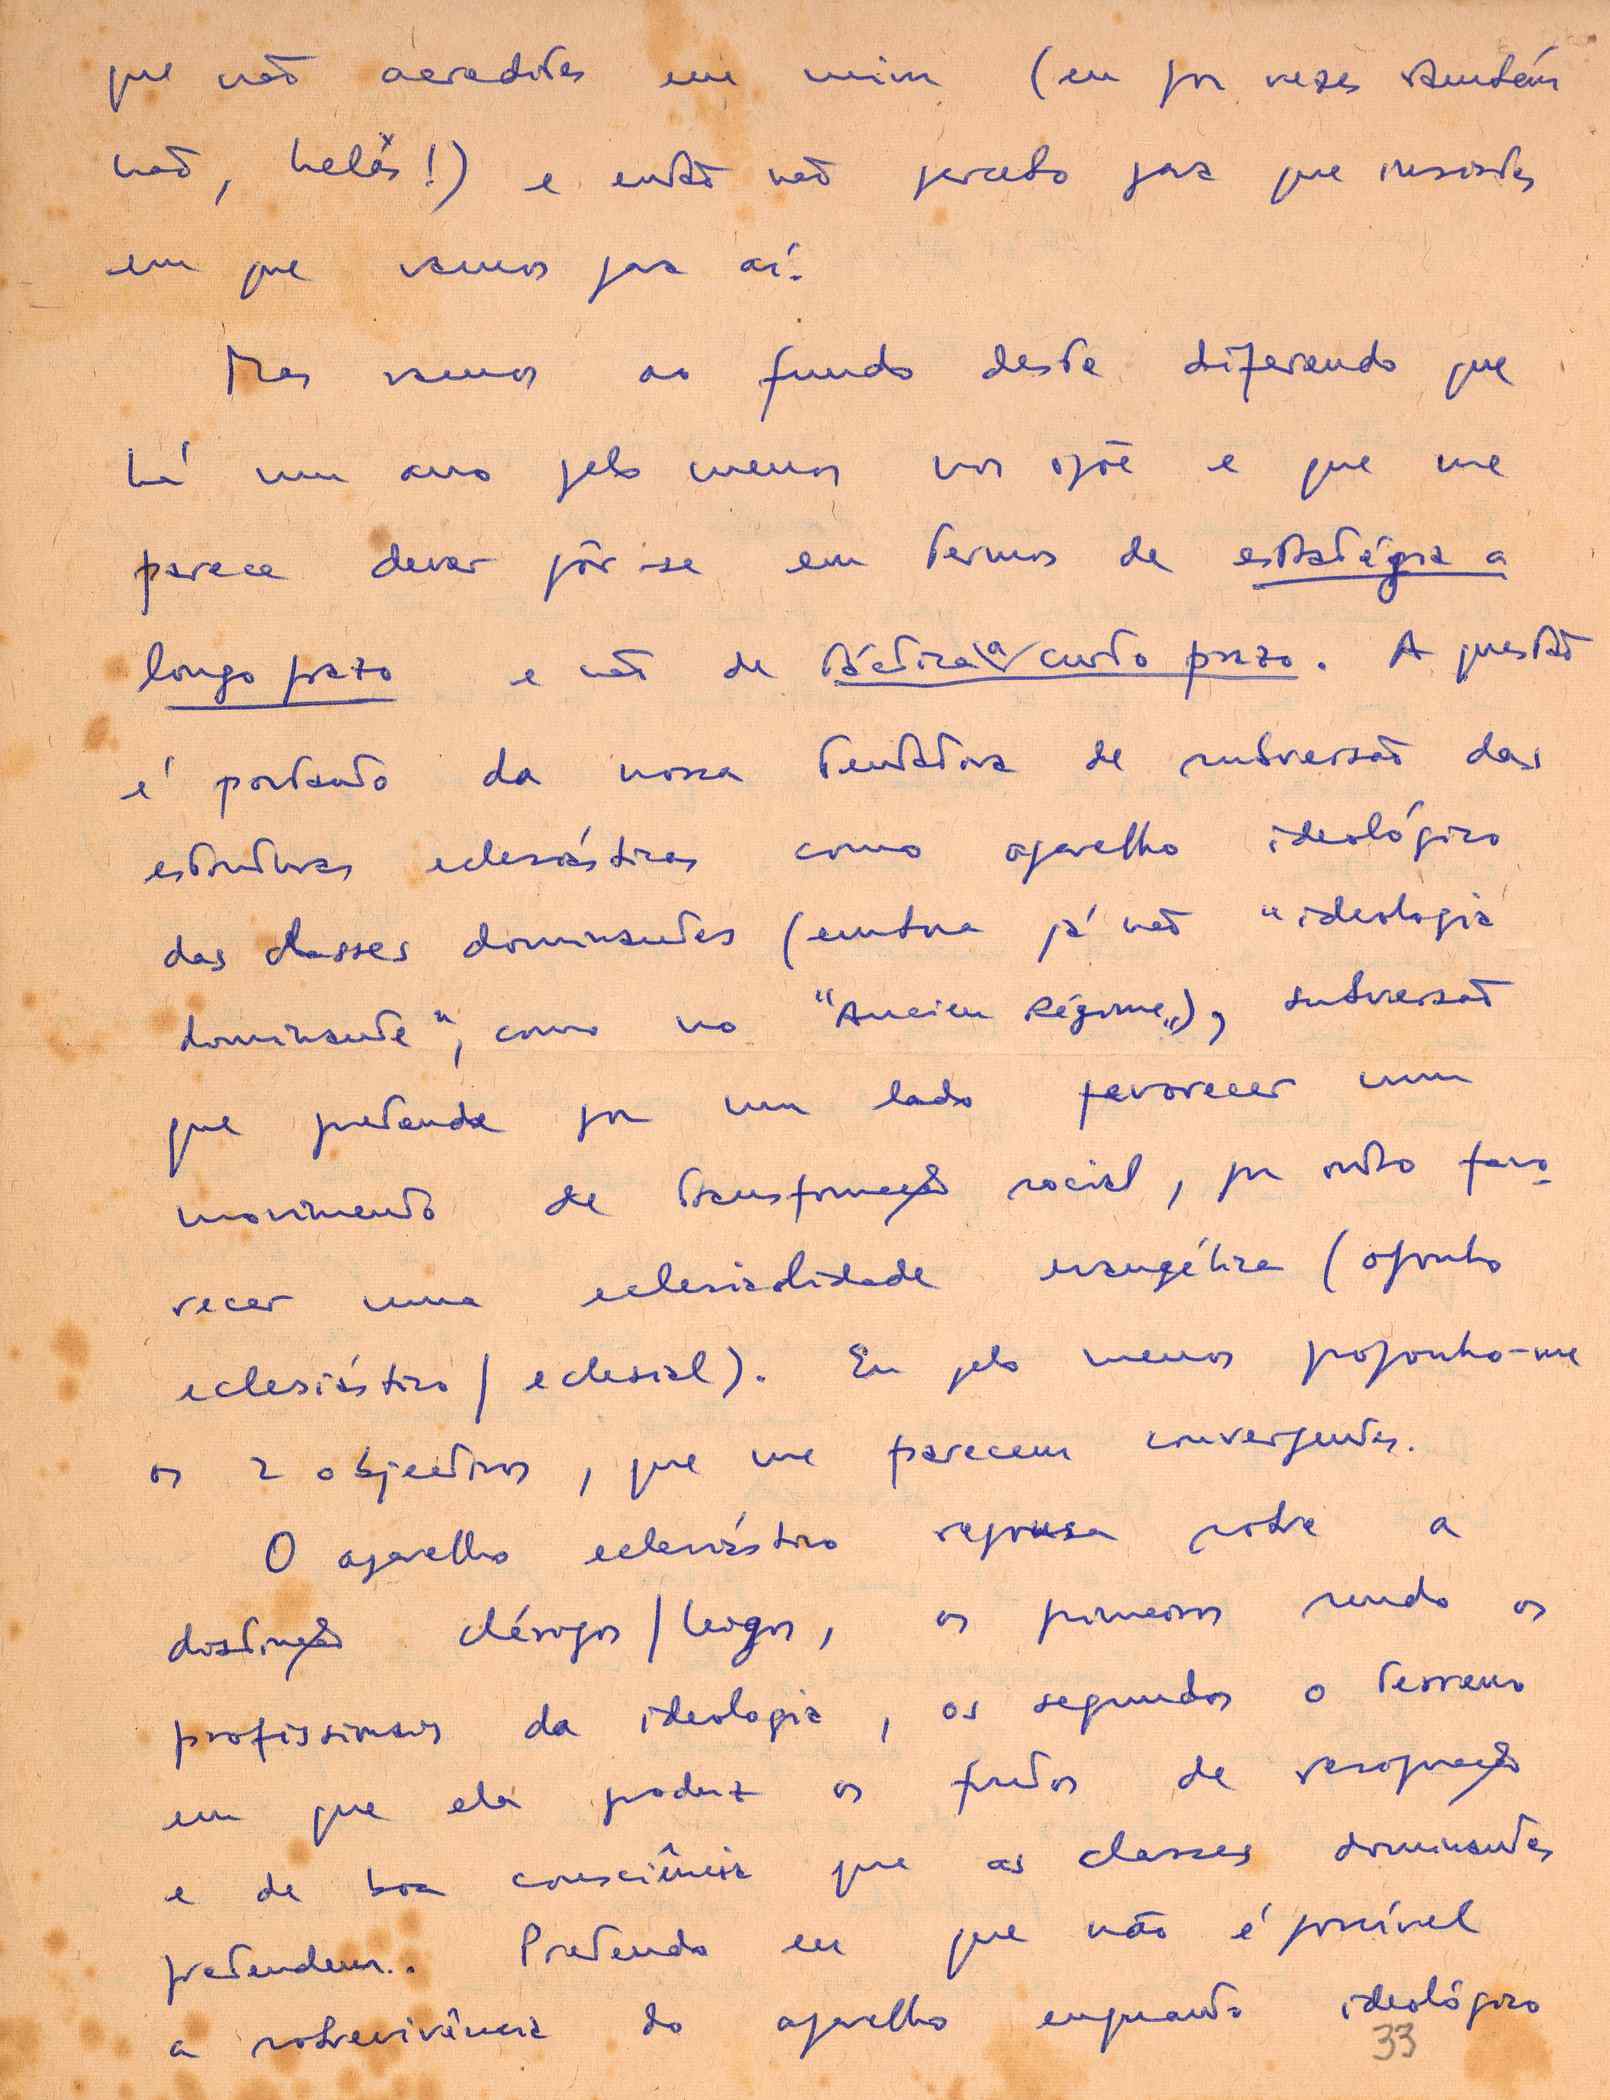 que não acreditas em mim (eu por vezes também
não, helás!) e então não percebo para que insistes
em que vamos para aí.
Mas vamos ao fundo deste diferendo que
há um ano pelo menos nos opõe e que me
parece dever pôr-se em termos de estratégia a
longo prazo e não de táctica a curto prazo. A questão
é portanto da nossa tentativa de subversão das
estruturas eclesiásticas como aparelho ideológico
das classes dominantes (embora já não "ideologia
dominante", como no "Ancien Régime"), subversão
que pretende por um lado favorecer um
movimento de transformação social, por outro favo-
recer uma eclesialidade evangélica (oponho
eclesiástico/eclesial). Eu pelo menos proponho-me
os 2 objectivos, que me parecem convergentes.
O aparelho eclesiástico repousa sobre a
distinção clérigos/leigos, os primeiros sendo os
profissionais da ideologia, os segundos o terreno
em que ela produz os frutos de resignação
e de boa consciência que as classes dominantes
pretendem. Pretendo eu que não é possível
a sobrevivência do aparelho enquanto ideológico
33